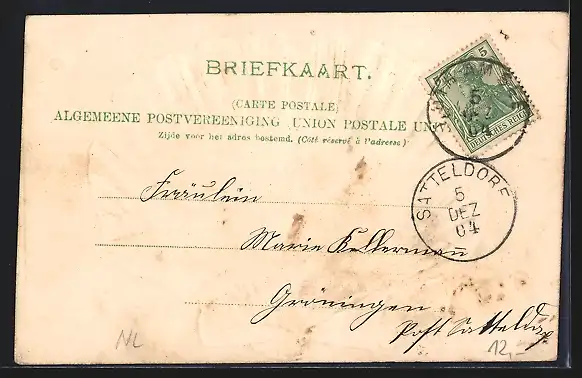 BRIEFKAART.
(CARTE POSTALE)
ALGEMEENE POSTVEREENIGING (UNION POSTALE UN
Zijde voor het adres bestemd. (Côté réservé à l'adresse)
5
5
DEZ
04
DEUTSCHES REICH
SATTELDORF
5
DEZ
04
Fräulein
Marie Kellerman
Gröningen
Post Satteldo
NL
12,-